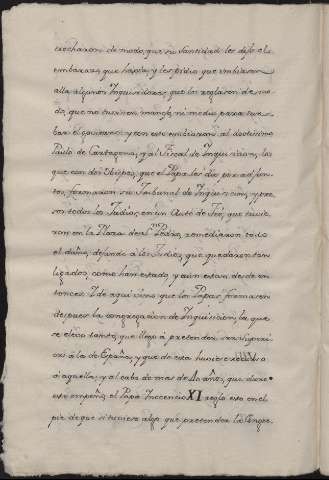 trecharon de modo, que su Santidad les dejo el
embarazo que hapia, y les pidio que embiasen
alla algunos Inquisidores, que los reglasen de mo-
do, que no tuviesen mano, ni medio para tur-
bar el govierno; y con esto embiaron al doctisimo
Paulo de Cartagena, y al Fiscal de Inquisicion, los
que con dos Obispos, que el Papa les dio por adjun-
tos, formaron su Tribunal de Inquisicion, y pre-
son todos los Judios, en un Auto de Feé, que tuvie-
ron en la Plaza de Sn. Pedro, remediaron todo
el daño, dejando a los Judios, que quedaron tan
ligados, como han estado, y aun estan desde en-
tonces. I de aqui vino que los Papas formasen
despues la congregacion de Inquisicion, la que
se elevo tanto, que llego á pretender ser superi-
or á la de España, y que de esta huviese recurso
si aquella; y al cabo de mas de 40 años, que duro
este empeño, el Papa Inocencio XI reglo esto en el
pie de que si tuviese algo que pretender la Congre-